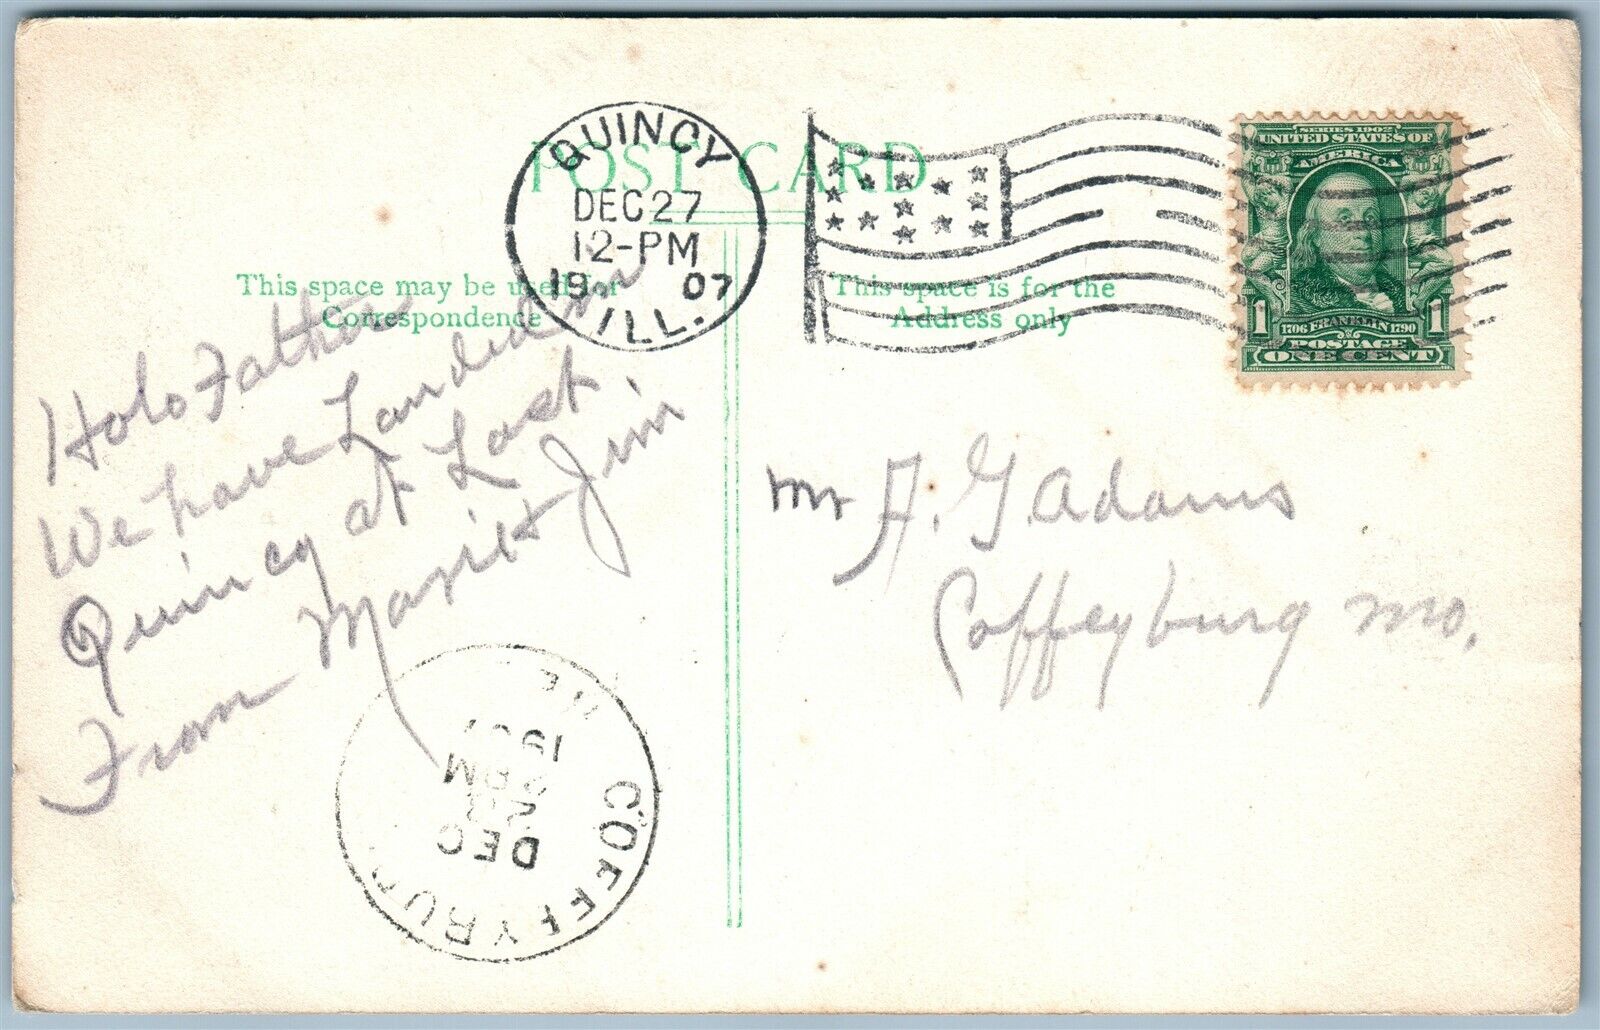 POST CARD
QUINCY
DEC 27
12-PM
1907
ILL.
This space may be used for
Correspondence
This space is for the
Address only
SERIES 1902
UNITED STATES OF
AMERICA
1 1706 FRANKLIN 1790 1
POSTAGE
ONE CENT
Holo Father
We have Landed in
Quincy at Last
From Jim
Mr A. G. Adams
Coffeyburg Mo.
COFFEYBU
DEC
PM
190